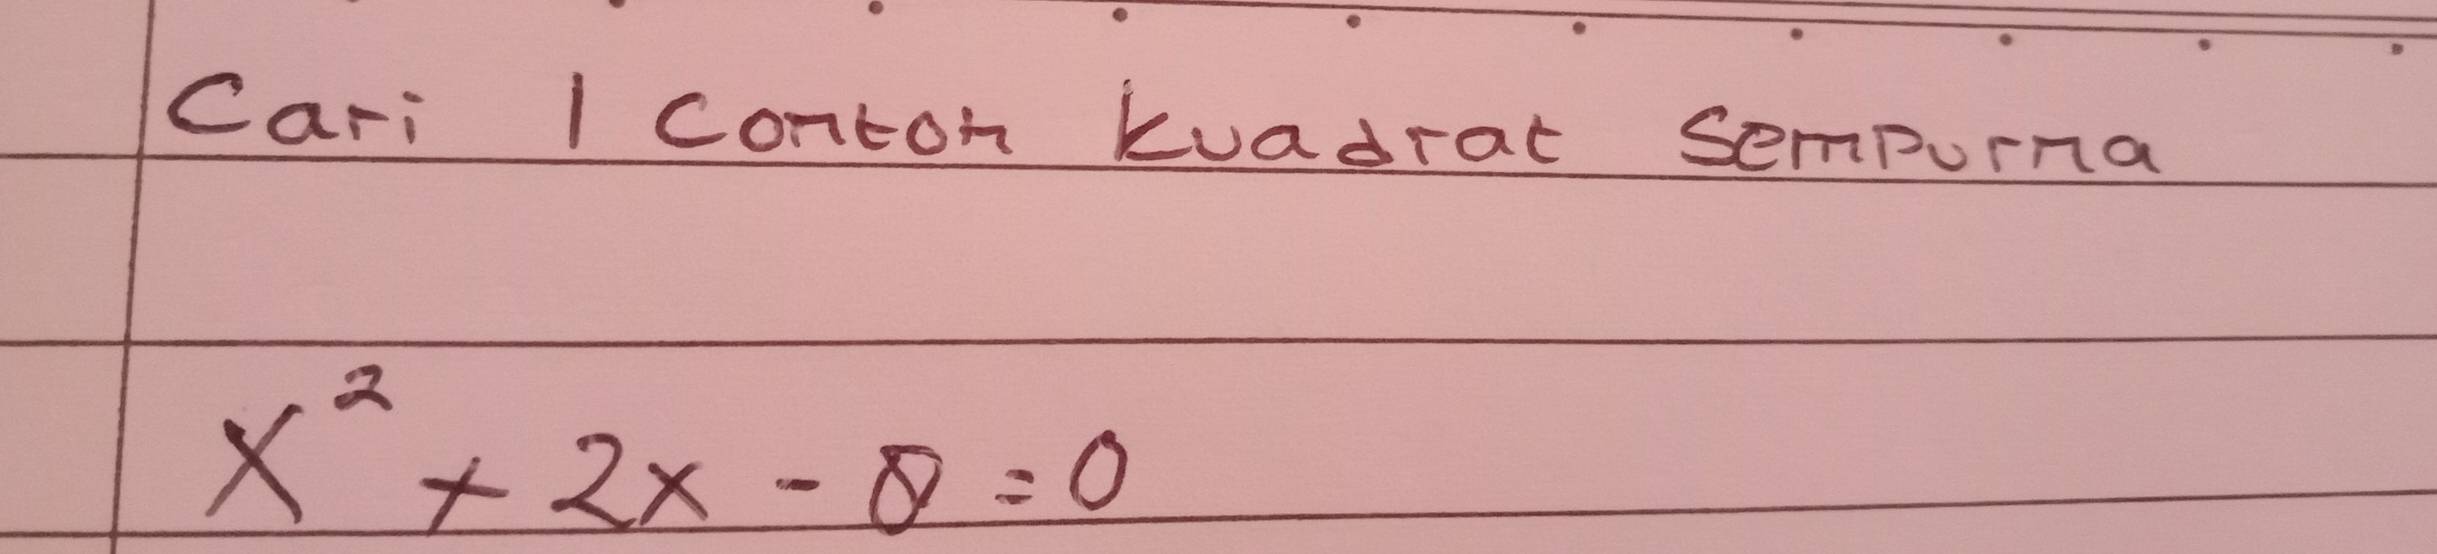 Cari 1 Contoh kuadrat Sempurna
x² + 2x - 8 = 0